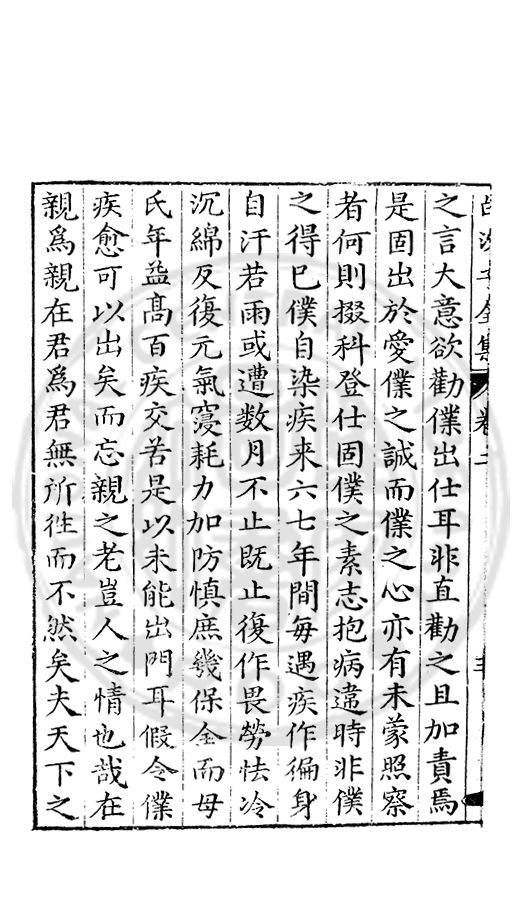 之言大意欲勸僕出仕耳非直勸之且加責焉
是固出於愛僕之誠而僕之心亦有未蒙照察
者何則掇科登仕固僕之素志抱病違時非僕
之得已僕自染疾来六七年間每遇疾作徧身
自汗若雨或遭数月不止既止復作畏勞怯冷
沉綿反復元氣寖耗力加防慎庶幾保全而母
氏年益髙百疾交若是以未能出門耳假令僕
疾愈可以出矣而忘親之老豈人之情也哉在
親爲親在君爲君無所徃而不然矣夫天下之